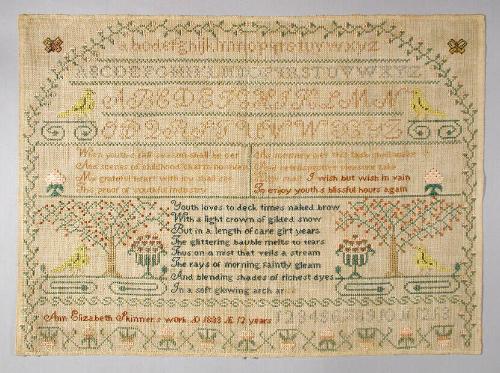 abcdefghijklmnopqrstuvwxyz
ABCDEFGHIJKLMNOPQRSTUVWXYZ
ABCDEFGHIJKLMN
OPQRSTUVW XYZ
When youth's fair season shall be oer
And scenes of childhood charm no more
My grateful heart with joy shall see
This proof of youthful industry
I wish but wish in vain
To enjoy youth's blissful hours again
Youth loves to deck times naked brow
With a light crown of gilded snow
But in a length of care girt years
The glittering bauble melts to tears
Thus on a mist that veils a stream
The rays of morning faintly gleam
And blending shades of richest dyes
In a soft glowing arch ar
Ann Elizabeth Skinner's work AE 12 years
1 2 3 4 5 6 7 8 9 10 11 12 13